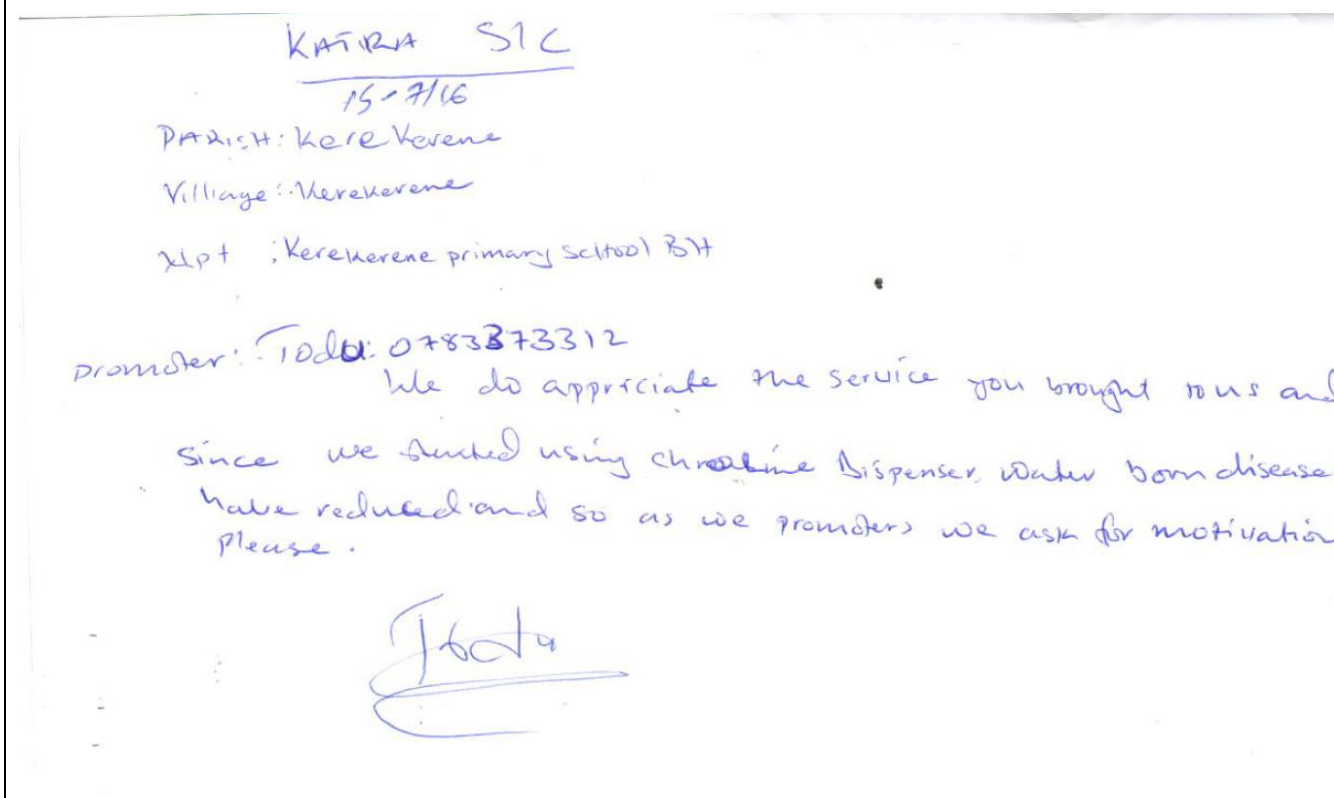 KATIRA S/C
15-7/16
PARISH: Kerekerene
Villiage: Kerekerene
Wpt : Kerekerene primary School BH
promoter: Todu: 0783373312
We do appriciate the service you brought to us and
since we started using chroline Dispenser, water born disease
have reduced and so as we promoters we ask for motivation
please.
Todu